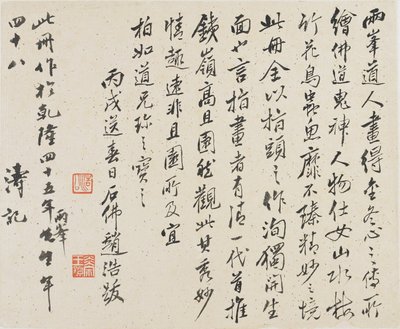 兩峯道人畫得金冬心之傳所
繪佛道鬼神人物仕女山水梅
竹花鳥蟲魚靡不臻精妙之境
此冊全以指頭之作洵獨開生
面也言指畫者有清一代首推
鐵嶺高且園然觀此其秀妙
情趣遠非且園所及宜
柏如道兄珍之寶之
丙戌送春日石佛趙浩跋
此冊作於乾隆四十五年兩峯先生年
四十八 濤記